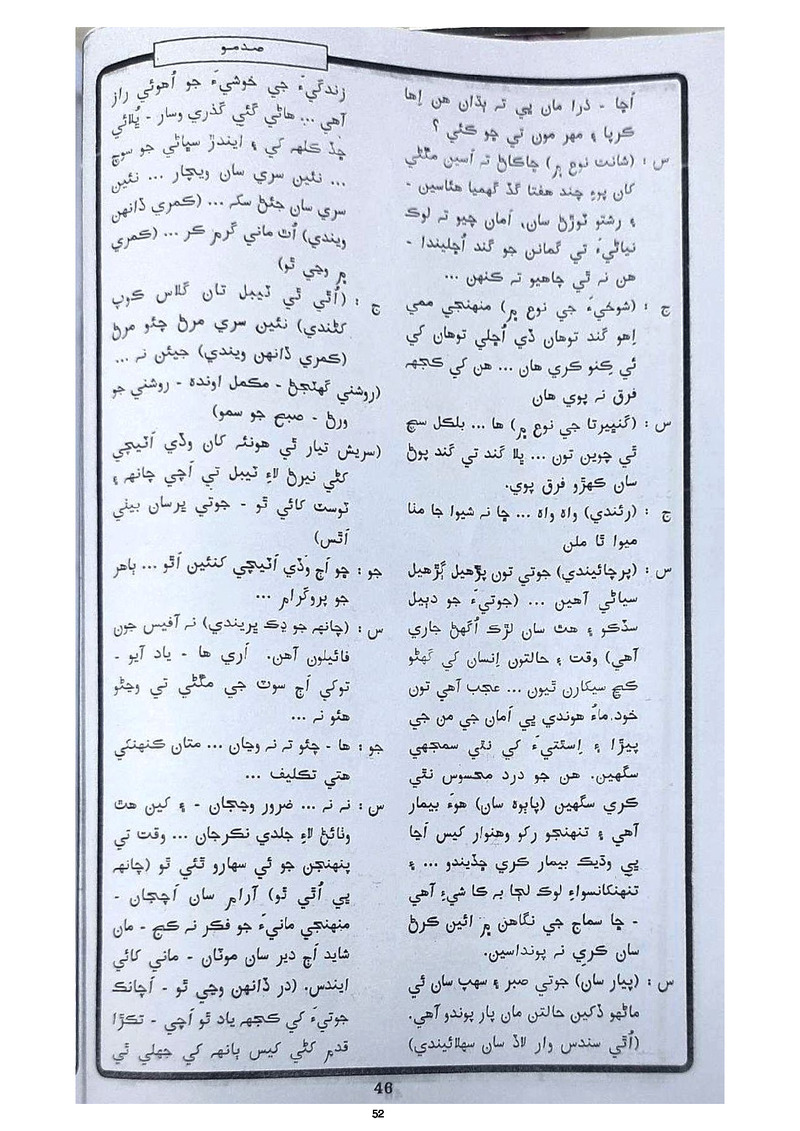 صدمو
اَڇا - ذرا مان ڀي ته ٻڌان هن اِها
ڪرپا ۽ مهر مون تي ڇو ڪئي ؟
س : (شانت نوع ۾) ڇاڪاڻ ته اَسين مڱڻي
کان پوءِ چند هفتا گڏ گهميا هئاسين -
۽ رشتو ٽوڙڻ سان، اَمان چيو ته لوڪ
نياڻيءَ تي گمانن جو گند اُڇليندا -
هن نه ٿي چاهيو ته ڪنهن ...
ج : (شوخيءَ جي نوع ۾) منهنجي ممي
اِهو گند توهان ڏي اُڇلي توهان کي
ئي ڪِنو ڪري هان ... هن کي ڪجهه
فرق نه پوي هان
س : (گنڀيرتا جي نوع ۾) ها ... بلڪل سچ
ٿي چوين تون ... ڀلا گند تي گند پوڻ
سان ڪهڙو فرق پوي.
ج : (رئندي) واه واه ... ڇا نه شيوا جا مٺا
ميوا ٿا ملن
س : (پرچائيندي) جوتي تون پڙهيل ڳڙهيل
سياڻي آهين ... (جوتيءَ جو دٻيل
سڏڪو ۽ هٿ سان لڙڪ اُگهڻ جاري
آهي) وقت ۽ حالتون اِنسان کي گهڻو
ڪڇ سيکارن ٿيون ... عجب آهي تون
خود ماءُ هوندي ڀي اَمان جي من جي
پيڙا ۽ اِسٿتيءَ کي نٿي سمجهي
سگهين. هن جو درد محسوس نٿي
ڪري سگهين (پاٻوه سان) هوءَ بيمار
آهي ۽ تنهنجو رکو وهنوار کيس اَڃا
ڀي وڌيڪ بيمار ڪري ڇڏيندو ... ۽
تنهنکانسواءِ لوڪ لڄا به ڪا شيءِ آهي
- ڇا سماج جي نگاهن ۾ ائين ڪرڻ
سان ڪري نه پونداسين.
س : (پيار سان) جوتي صبر ۽ سهپ سان ئي
ماڻهو ڏکين حالتن مان پار پوندو آهي.
(اُٿي سندس وار لاڏ سان سهلائيندي)
زندگيءَ جي خوشيءَ جو اُهوئي راز
آهي ... هاڻي گئي گذري وسار - ڀُلائي
ڇڏ ڪلهه کي ۽ ايندڙ سڀاڻي جو سوچ
... نئين سري سان ويچار ... نئين
سري سان جئڻ سک ... (ڪمري ڏانهن
ويندي) اُٿ ماني گرم ڪر ... (ڪمري
۾ وڃي ٿو)
ج : (اُٿي ٿي ٽيبل تان گلاس ڪوپ
کڻندي) نئين سري مرڻ چئو مرڻ
(ڪمري ڏانهن ويندي) جيئن نه ...
(روشني گهٽجڻ - مڪمل اونده - روشني جو
ورڻ - صبح جو سمو)
(سريش تيار ٿي هونئه کان وڏي اٽيچي
کڻي نيرڻ لاءِ ٽيبل تي اَچي چانهه ۽
ٽوسٽ کائي ٿو - جوتي ڀرسان بيٺي
اَٿس)
جو : ڇو اَڄ وَڏي اَٽيچي کنئين اَٿو ... ٻاهر
جو پروگرام ...
س : (چانهه جو ڍڪ ڀريندي) نه آفيس جون
فائيلون آهن. اَري ها - ياد آيو -
توکي اَڄ سوٽ جي مڱڻي تي وڃڻو
هئو نه ...
جو : ها - چئو ته نه وڃان ... متان ڪنهنکي
هتي تڪليف ...
س : نه نه ... ضرور وڃجان - ۽ کين هٿ
وٺائڻ لاءِ جلدي نڪرجان ... وقت تي
پنهنجن جو ئي سهارو ٿئي ٿو (چانهه
پي اُٿي ٿو) آرام سان اَچجان -
منهنجي مانيءَ جو فڪر نه ڪج - مان
شايد اَڄ دير سان موٽان - ماني کائي
ايندس. (در ڏانهن وڃي ٿو - اَچانڪ
جوتيءَ کي ڪجهه ياد ٿو اَچي - تڪڙا
قدم کڻي کيس ٻانهه کي جهلي ٿي
46
52